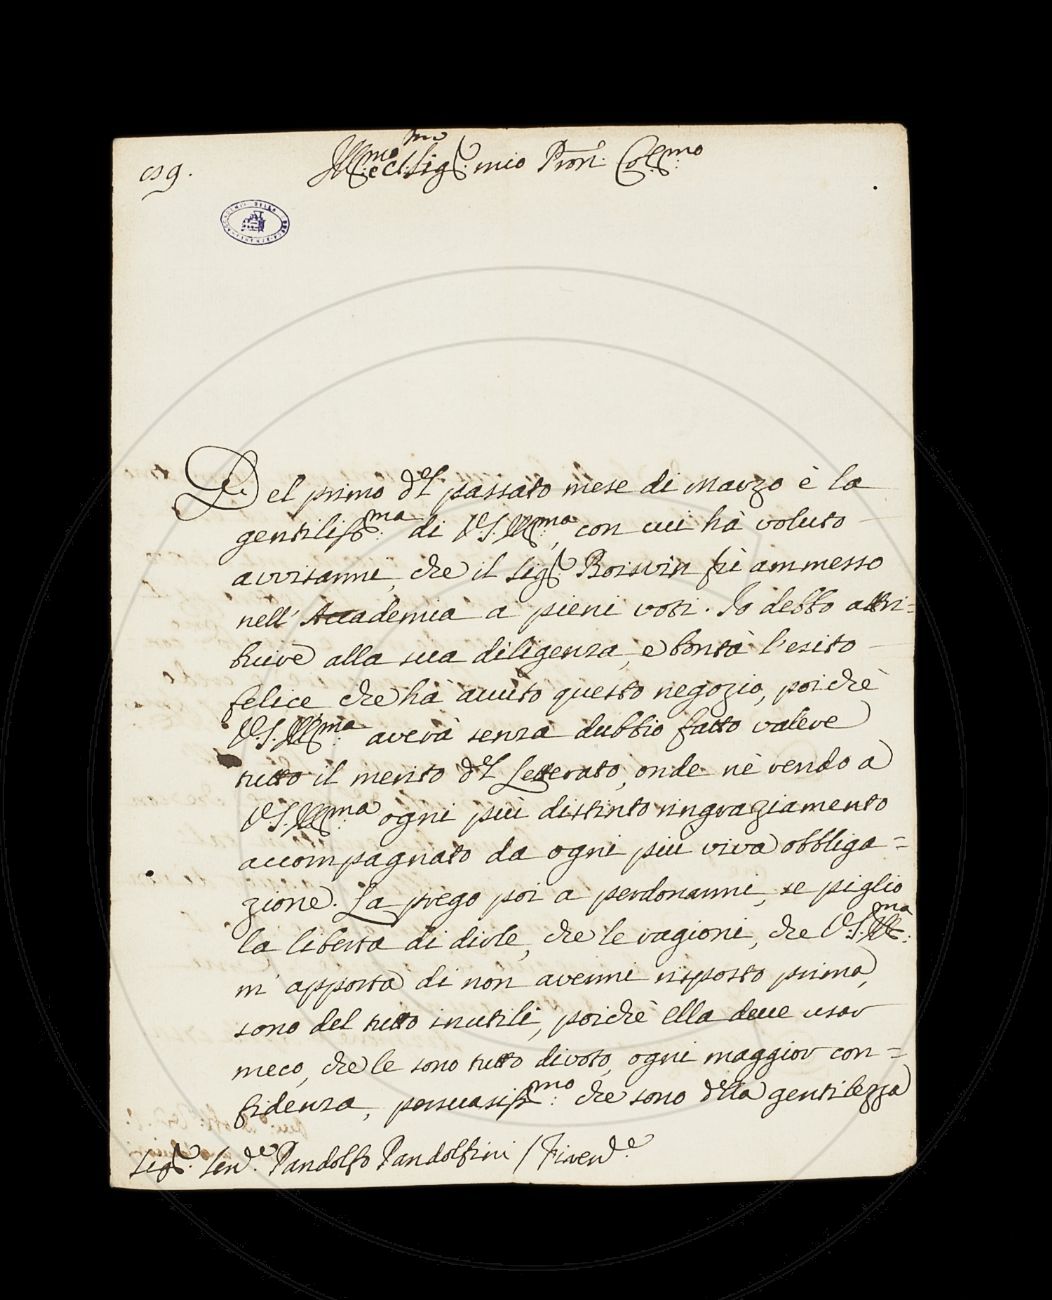 159.
Ill:mo e Cl:mo Sig:r mio Pron: Col:mo
Del primo del passato mese di Marzo è la
gentiliss:ma di V.S. Ill:ma, con cui hà voluto
avvisarmi, che il Sig:r Boisvin fù ammesso
nell' Accademia a pieni voti. Io debbo attri=
buire alla sua diligenza, e bontà l'esito
felice che hà avuto questo negozio, poichè
V.S. Ill:ma averà senza dubbio fatto valere
tutto il merito del Letterato, onde nè rendo a
V.S. Ill:ma ogni più distinto ringraziamento
accompagnato da ogni più viva obbliga=
zione. La prego poi a perdonarmi, se piglio
la libertà di dirle, che le ragioni, che V.S. Ill:ma
m' apporta di non avermi risposto prima,
sono del tutto inutili, poichè Ella deve usar
meco, che le sono tutto divoto, ogni maggior con=
fidenza, persuasiss:mo che sono della gentilezza
Sig:r Sen:re Pandolfo Pandolfini / Firen:e